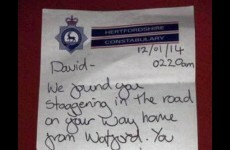 HERTFORDSHIRE
CONSTABULARY
12/01/14
David- 0220am
We found you
staggering in the road
on your way home
from Watford. You